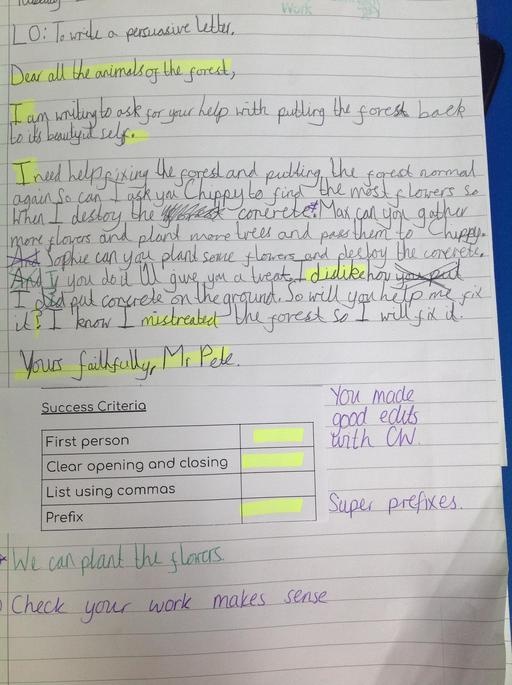 Work
LO: To write a persuasive letter.
Dear all the animals of the forest,
I am writing to ask for your help with putting the forest back
to its beautyid self.
I need help fixing the forest and putting the forest normal
again So can I ask you Chippy to find the most flowers so
when I destoy the concrete. Max can you gather
more flowers and plant more trees and pass them to Chippy.
And Sophie can you plant some flowers and destoy the concrete.
And If you do it I'll give you a treat. I didike how you put
I did put concrete on the ground. So will you help me fix
it? I know I mistreated the forest so I will fix it.
Yours faithfully, Mr Pete.
Success Criteria
First person
Clear opening and closing
List using commas
Prefix
You made
good edits
with CW.
Super prefixes.
We can plant the flowers.
Check your work makes sense